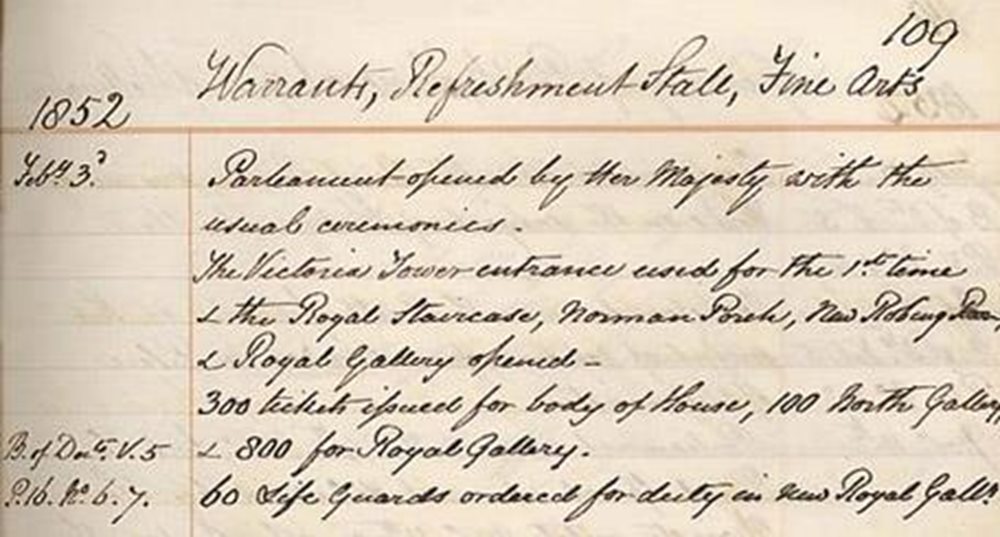 109
Warrants, Refreshment Stall, Fine Arts
1852
Feby. 3d. Parliament opened by Her Majesty with the
usual ceremonies.
The Victoria Tower entrance used for the 1st. time
& the Royal Staircase, Norman Porch, New Robing Room,
& Royal Gallery opened –
300 tickets issued for body of House, 100 North Gallery,
B. of Docts. V. 5 & 800 for Royal Gallery.
P. 16. No. 6. 7. 60 Life Guards ordered for duty in new Royal Gally.